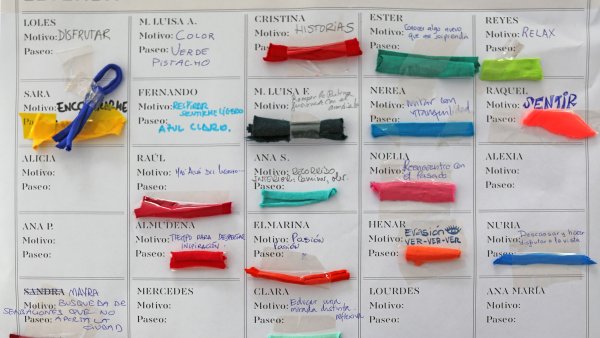 LOLES
Motivo: DISFRUTAR
Paseo:
M. LUISA A.
Motivo: COLOR
Paseo: VERDE
PISTACHO
CRISTINA
Motivo: HISTORIAS
Paseo:
ESTER
Motivo: Conocer algo nuevo
que me sorprenda
REYES
Motivo: RELAX
Paseo:
SARA
Motivo: ENCONTRARME
Paseo:
FERNANDO
Motivo: RESPIRAR
SENTIRME LIGERO
Paseo:
AZUL CLARO.
M. LUISA F.
Motivo: Romper la rutina
Paseo:
NEREA
Motivo: Mirar con
tranquilidad
Paseo:
RAQUEL
Motivo: SENTIR
Paseo:
ALICIA
Motivo:
Paseo:
RAÚL
Motivo: MÁS ALLÁ DEL
Paseo:
ANA S.
Motivo: RECORRIDO
INTERIOR: Caminar, obs.
Paseo:
NOELIA
Motivo: Reencuentro con
el pasado
Paseo:
ALEXIA
Motivo:
Paseo:
ANA P.
Motivo:
Paseo:
ALMUDENA
Motivo: TIEMPO PARA DESPERTAR
INSPIRACIÓN
Paseo:
ELMARINA
Motivo: Pasión
Paseo:
HENAR
Motivo: EVASIÓN
VER-VER-VER
Paseo:
NURIA
Motivo: Descansar y hacer
disfrutar a la vista
Paseo:
SANDRA MAYRA
Motivo: BUSQUEDA DE
SENSACIONES QUE NO
Paseo: APORTA LA
CIUDAD
MERCEDES
Motivo:
Paseo:
CLARA
Motivo: Educar una
mirada distinta
Paseo:
LOURDES
Motivo:
Paseo:
ANA MARÍA
Motivo:
Paseo: